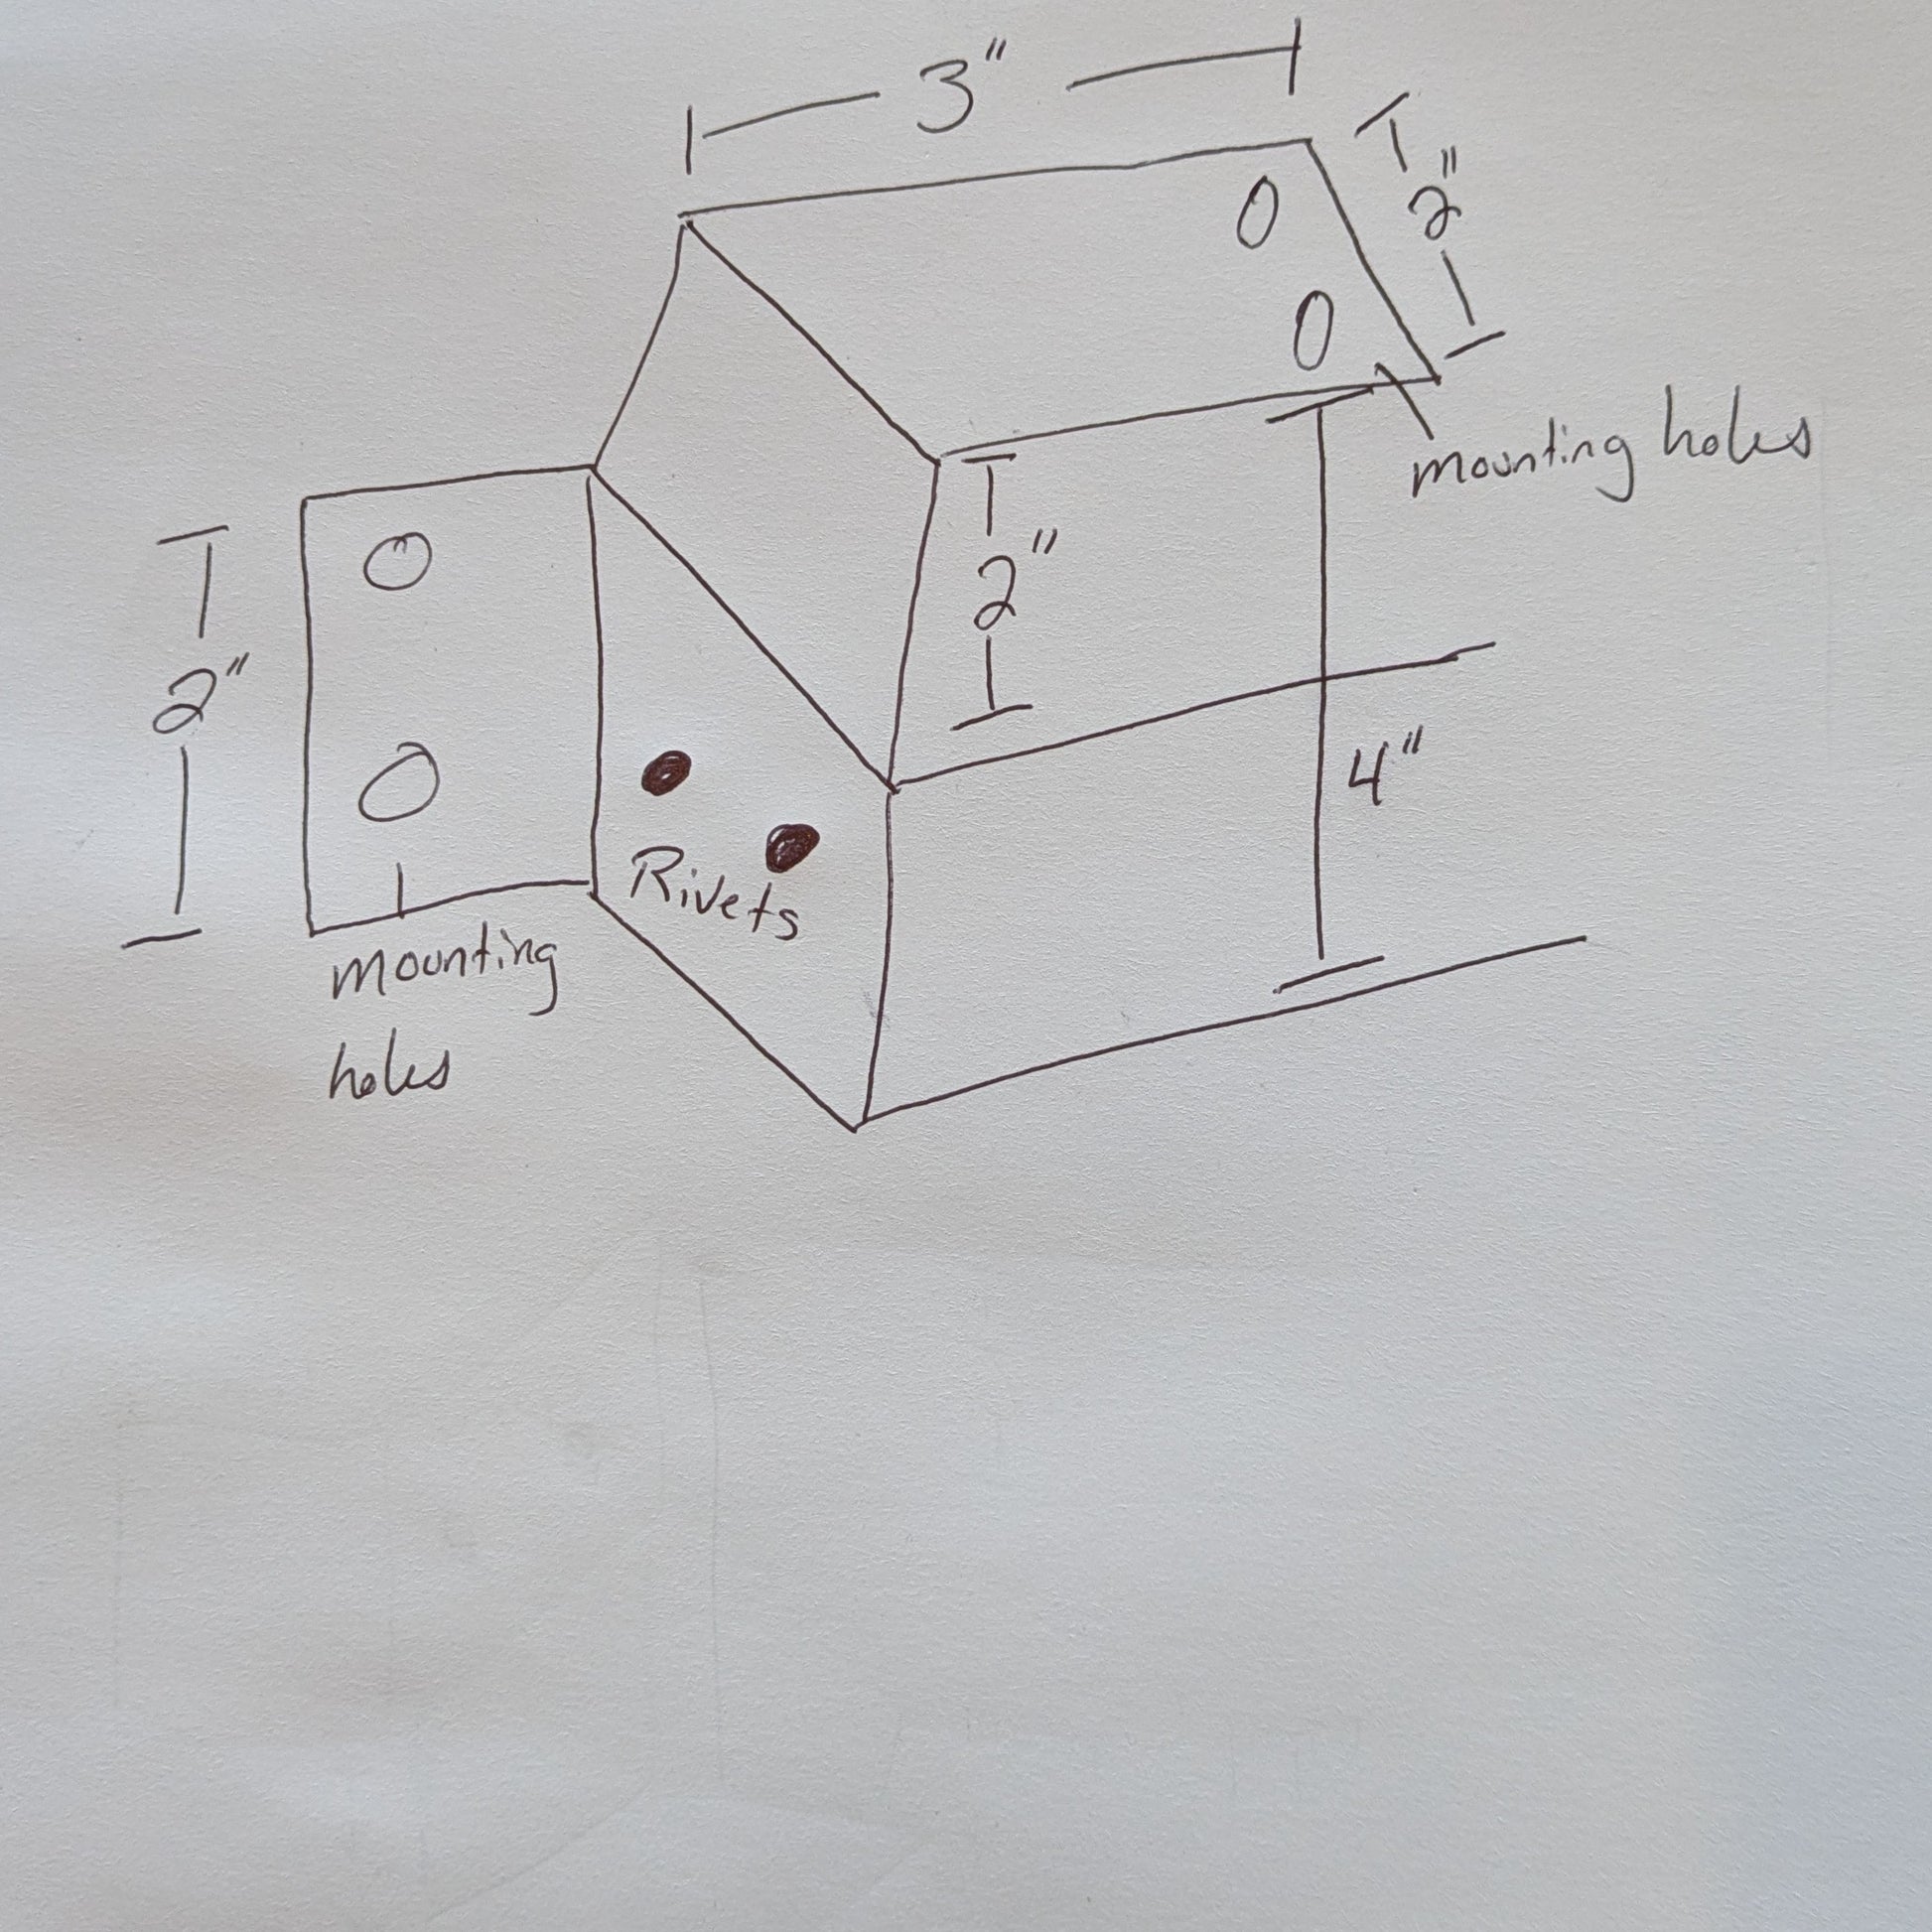 3"
2"
mounting holes
2"
2"
4"
Rivets
mounting
holes